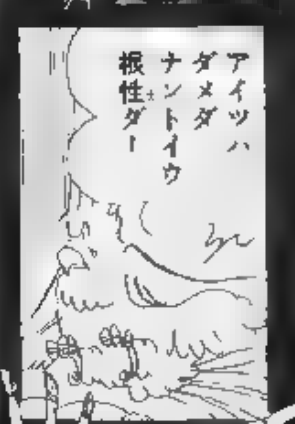 アイツハ
ダメダ
ナントイウ
根性ダー